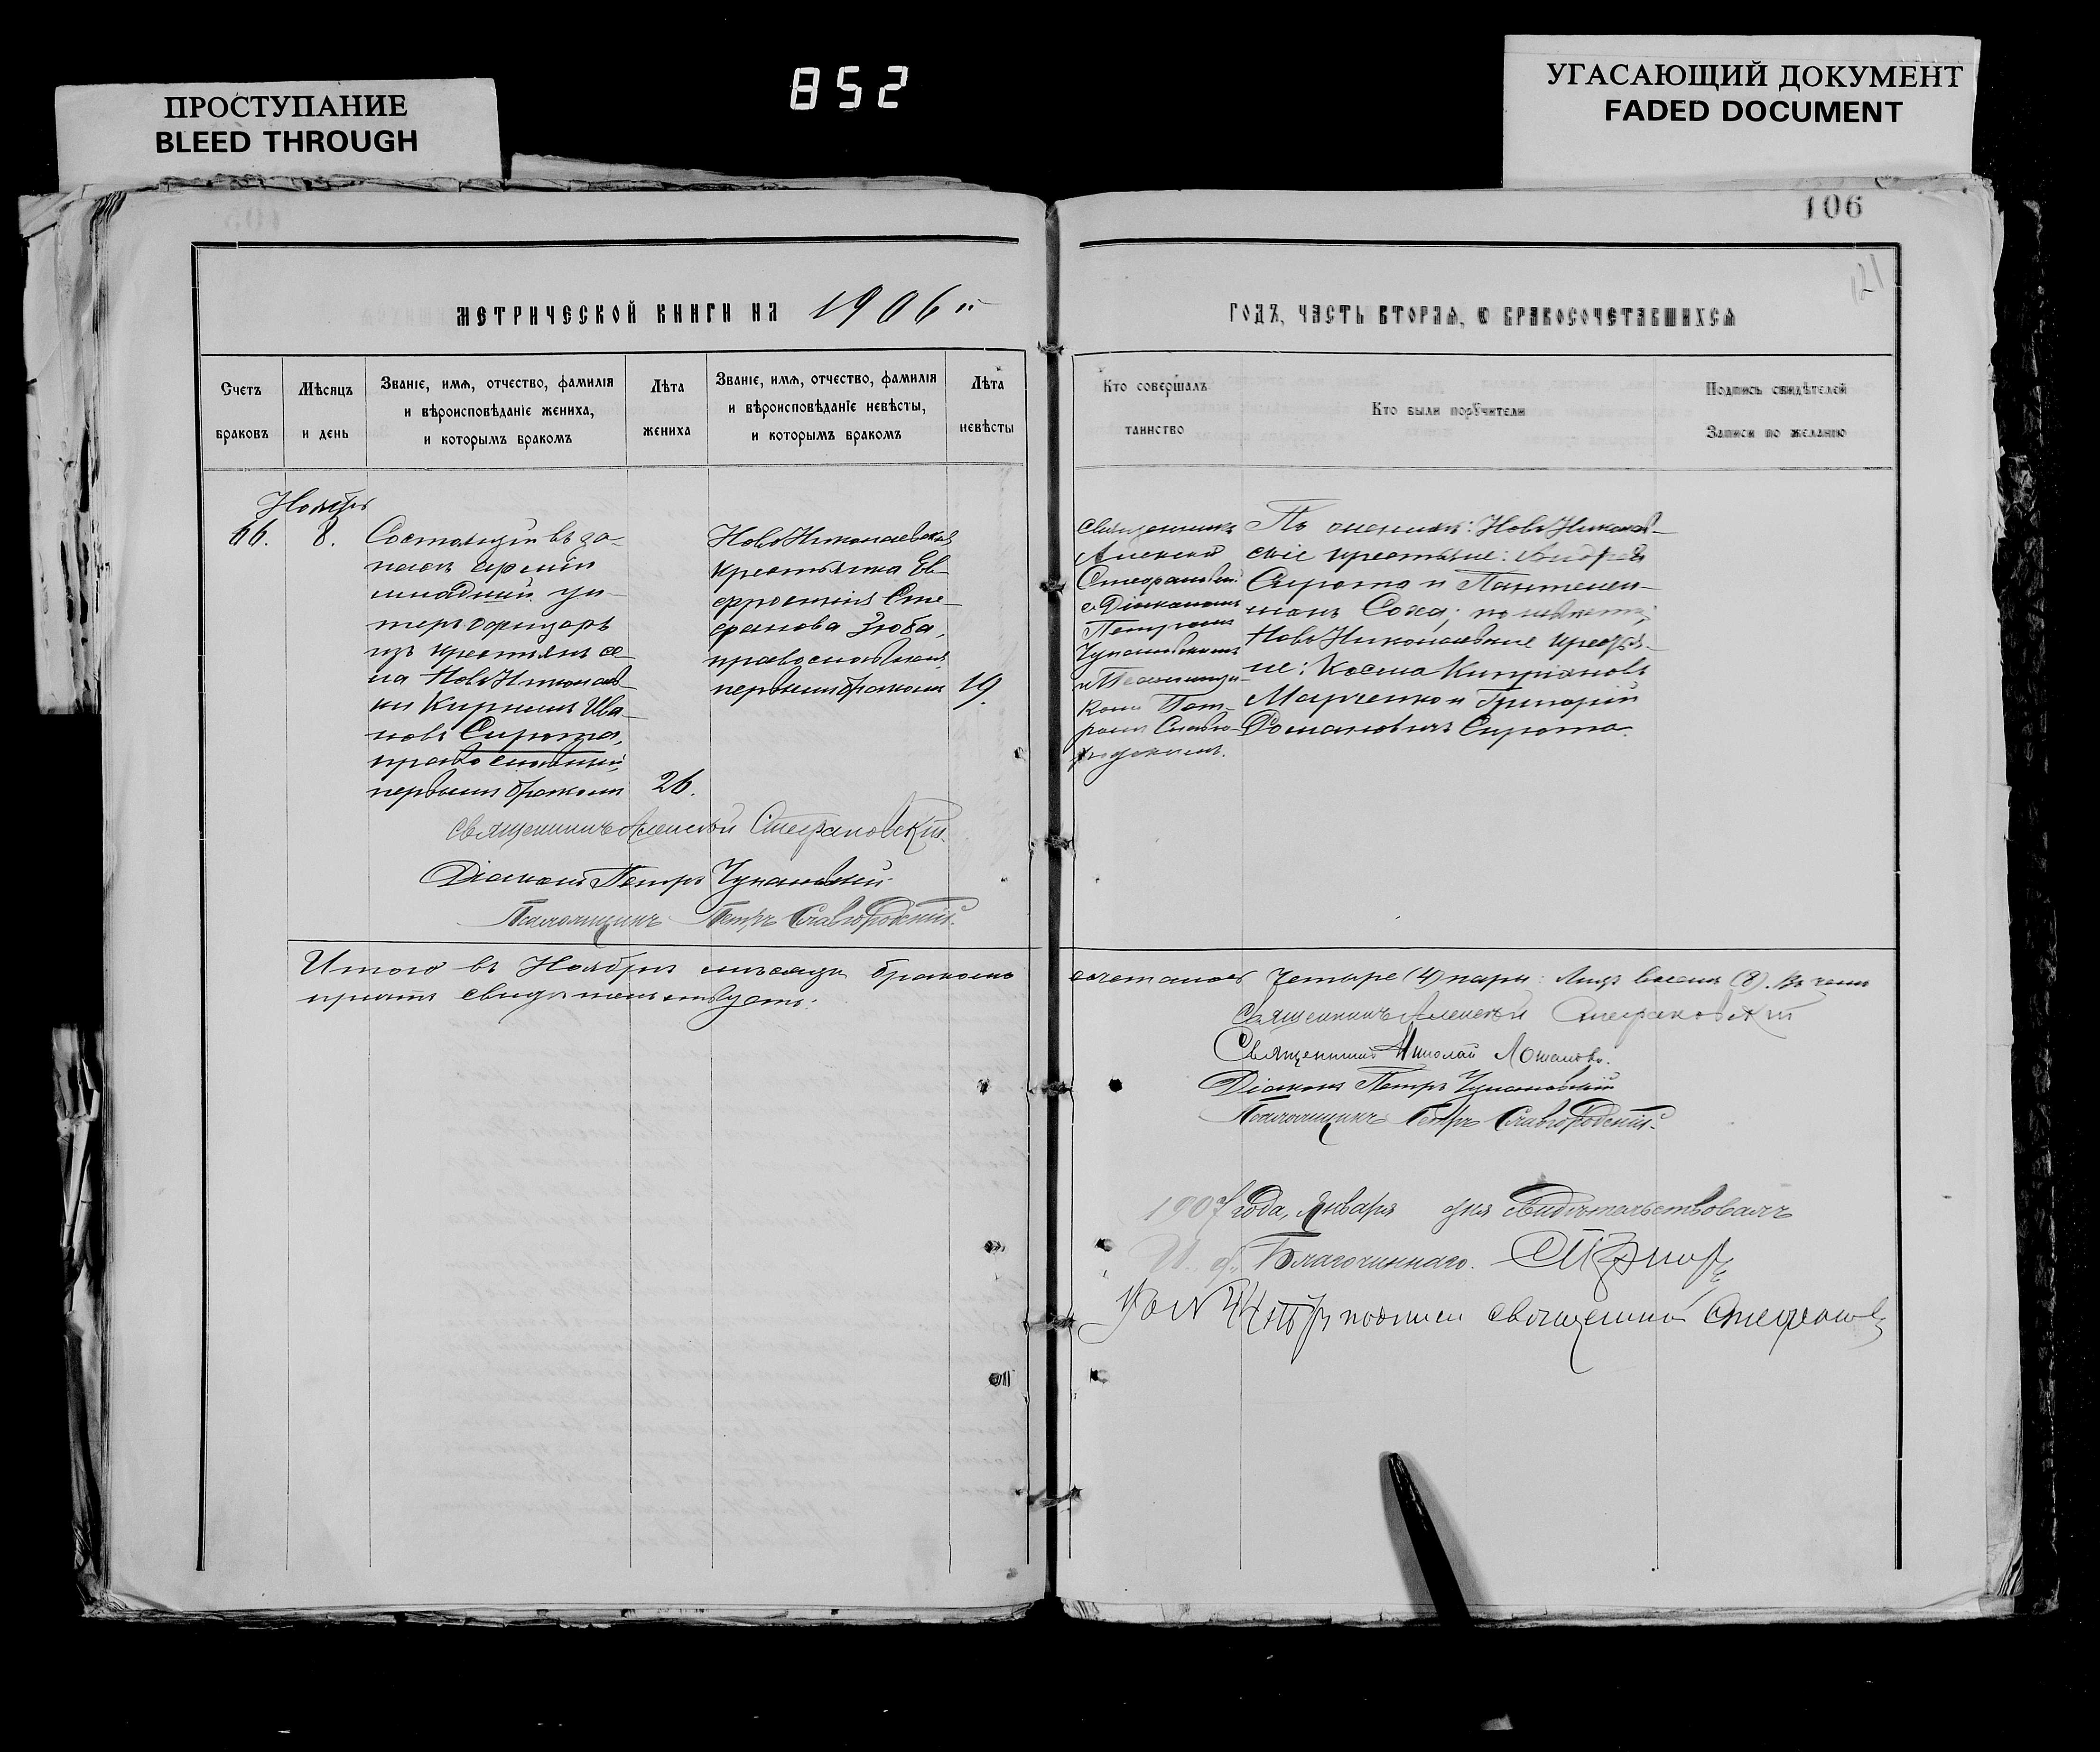 ПРОСТУПАНИЕ
BLEED THROUGH
852
УГАСАЮЩИЙ ДОКУМЕНТ
FADED DOCUMENT
106
121
МЕТРИЧЕСКОЙ КНИГИ НА 1906й
ГОДЪ, ЧАСТЬ ВТОРАЯ, О БРАКОСОЧЕТАВШИХСЯ
Счетъ
браковъ
Мѣсяцъ
и день
Званіе, имя, отчество, фамилія
и вѣроисповѣданіе жениха,
и которымъ бракомъ
Лѣта
жениха
Званіе, имя, отчество, фамилія
и вѣроисповѣданіе невѣсты,
и которымъ бракомъ
Лѣта
невѣсты
Кто совершалъ
таинство
Кто были поручители
Подпись свидѣтелей
Записи по желанію
Ноябрь
66.
8.
Состоящій въ за-
пасѣ арміи
младшій ун-
теръ офицеръ
изъ крестьянъ се-
ла Ново Николаев-
ки Кириллъ Ива-
новъ Сирота,
православный,
первымъ бракомъ
26.
Ново Николаевская
крестьянка Ев-
фросинія Сте-
фанова Зюба,
православная,
первымъ бракомъ
19.
Священникъ
Алексій
Стефановскій
съ Діакономъ
Петромъ
Чупановскимъ
и Псаломщи-
комъ Пет-
ромъ Славго-
родскимъ.
По женихѣ: Ново Николаев-
скіе крестьяне: Андрей
Сирота и Пантелей-
монъ Соха; по невѣстѣ:
Ново Николаевскіе крестья-
не: Косма Кипріановъ
Марченко и Григорій
Романовичъ Сирота.
Священникъ Алексій Стефановскій.
Діаконъ Петръ Чупановскій
Псаломщикъ Петръ Славгородскій.
Итого въ Ноябрѣ мѣсяцѣ бракомъ
сочеталось Четыре (4) пары: Лицъ восемь (8). Въ чемъ
причтъ свидѣтельствуетъ:
Священникъ Алексій Стефановскій
Священникъ Николай
Діаконъ Петръ Чупановскій
Псаломщикъ Петръ Славгородскій.
1907 года, Января дня Свидѣтельствовалъ
И. д. Благочиннаго.
подписи священникъ